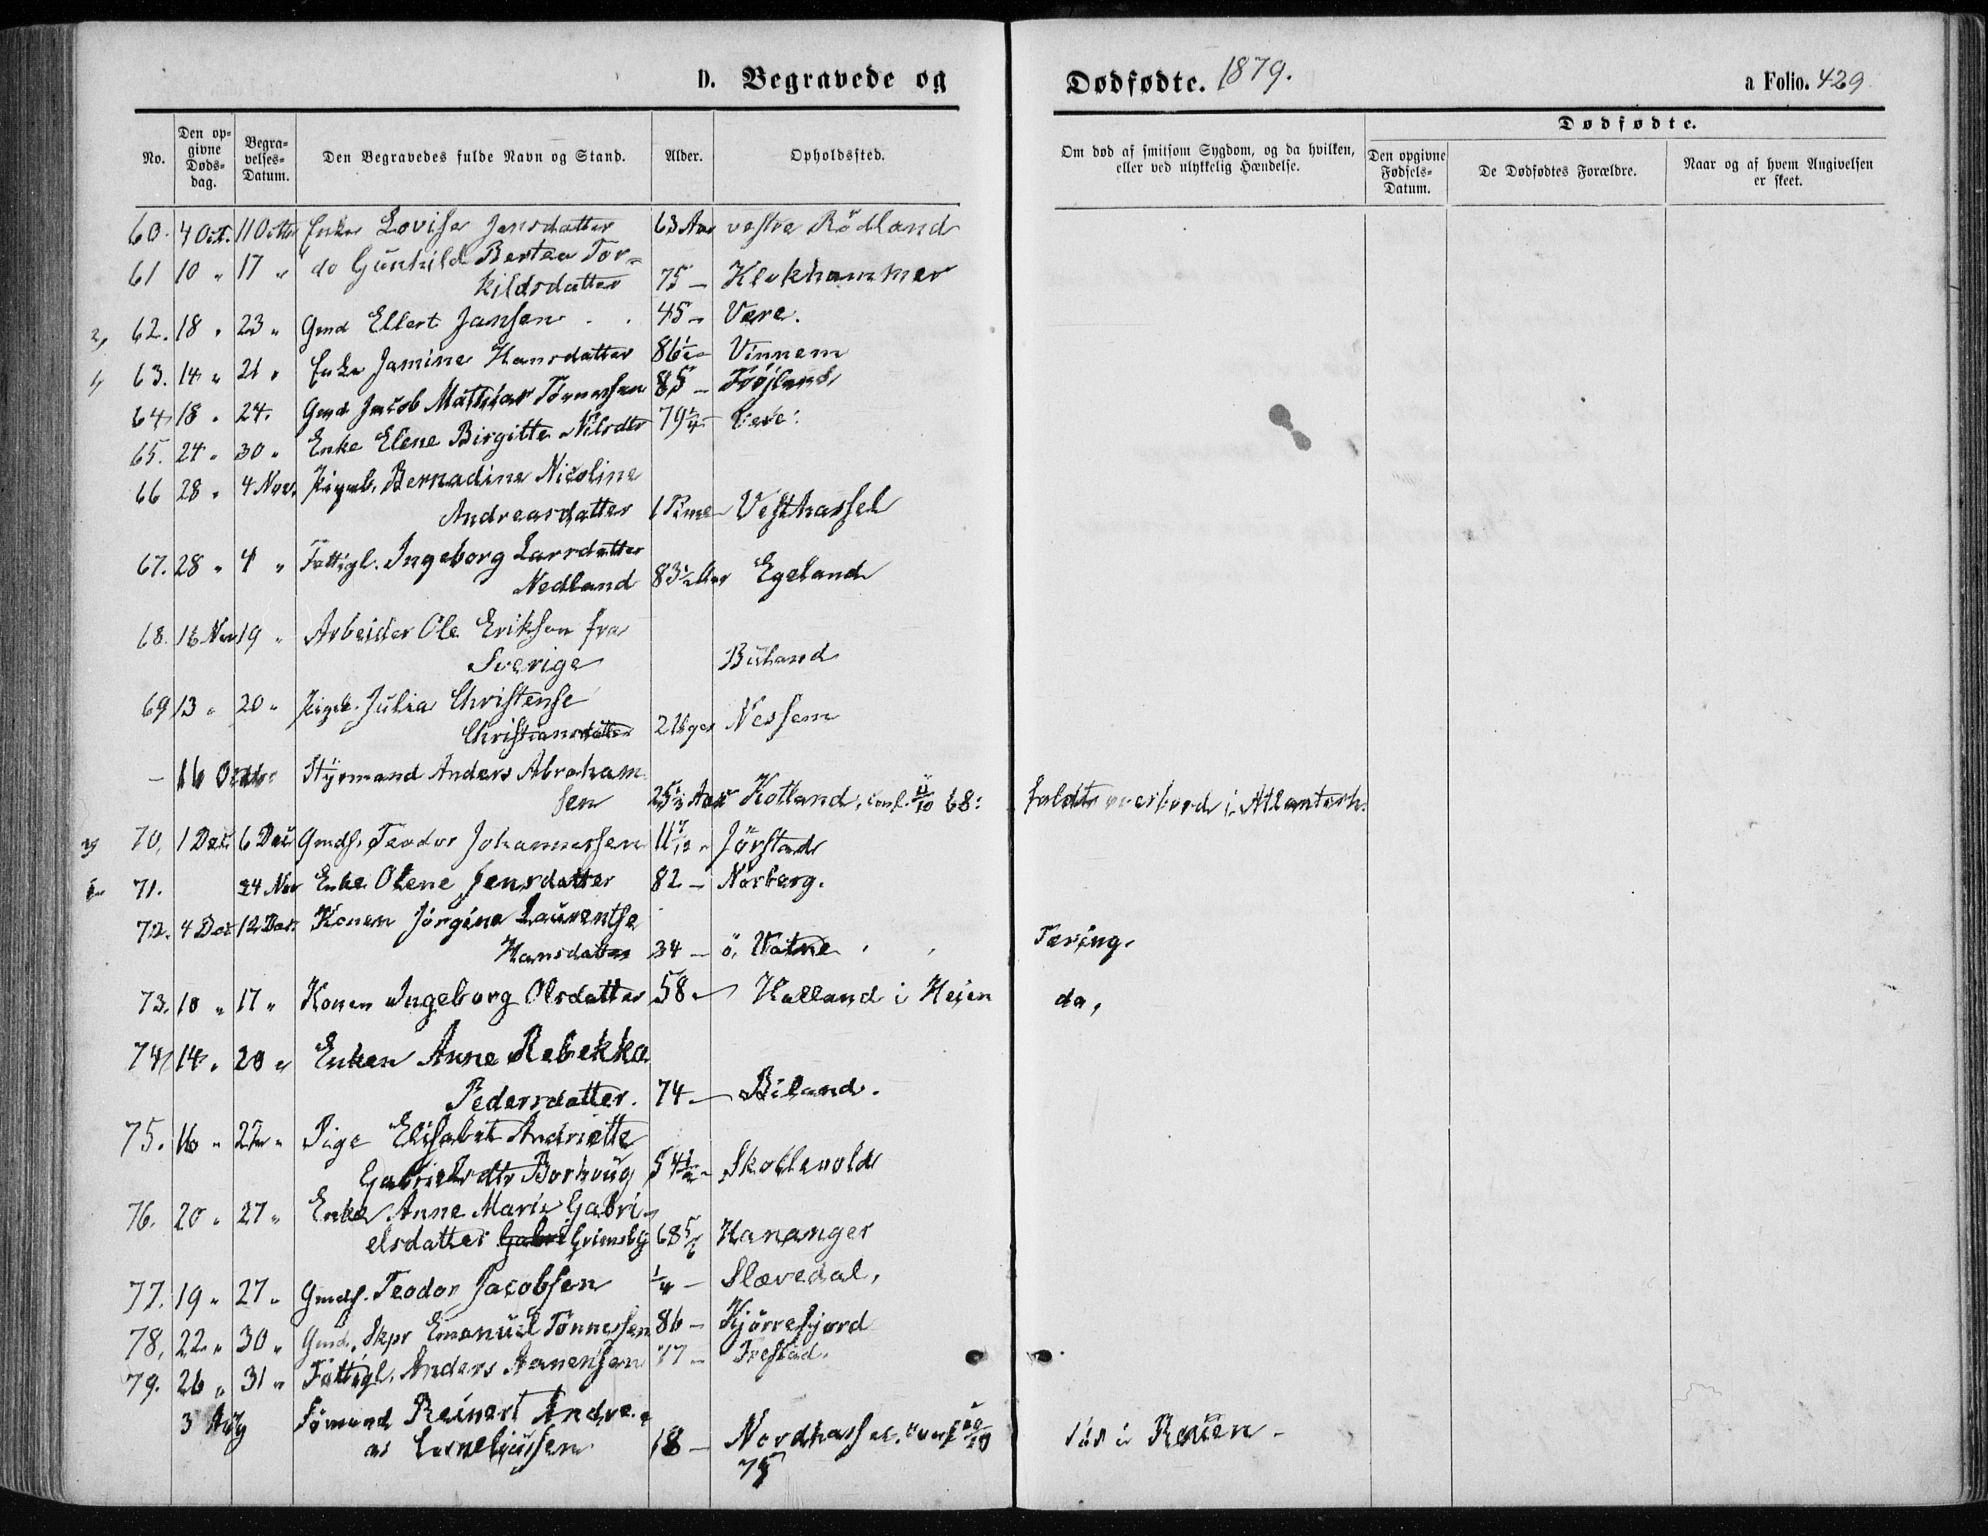 D. Begravede og
Dødfødte. 1879.
a Folio. 429
No.
Den opgivne Døds-dag.
Begravelses-Datum.
Den Begravedes fulde Navn og Stand.
Alder.
Opholdssted.
Om død af smitsom Sygdom, og da hvilken, eller ved ulykkelig Hændelse.
Dødfødte.
Den opgivne Fødsels-Datum.
De Dødfødtes Forældre.
Naar og af hvem Angivelsen er skeet.
60. 4 Oct. 11 Octbr Enke Lovise Jensdatter 63 Aar vestre Rødland
61 10 " 17 " do Gunhild Bertea Tor=
kildsdatter 75 – Klokhammer
62. 18 " 23 " Gmd Ellert Jansen 45 – Vere.
63. 14 " 21 " Enke Jamine Hansdatter 86½ Vinnem
64 18 " 24. Gmd Jacob Mathias Tønnessen 85 – Frøjland
65. 24 " 30 " Enke Elene Birgitte Nilsdtr 79¼ Vere.
66 28 " 4 Nov. Pigeb. Bernadine Nicoline
Andreasdatter 1 Time Vesthassel
67. 28 " 4 " Fattigl. Ingeborg Larsdatter
Nedland 83½ Aar Egeland
68. 13 Nov 19 " Arbeider Ole Eriksen fra
Sverige Buland
69 13 " 20 " Pigeb. Julia Christense
Christiansdatter 2 Uger Nessem
– 16 Octbr Styrmand Anders Abraham
sen 25½ Aar Kolland, conf. 11/10 68: faldt overbord i Atlanterh.
70. 1 Dec 6 Dec Gmds. Teodor Johannessen 11 7/12 " Jørstad
71. 24 Nov Enke Olene Jensdatter 82 – Norberg.
72. 4 Dec 12 Dec. Konen Jørgine Laurentse
Hansdatter 34 – ö. Vatne Tæring.
73. 10 " 17 " Konen Ingeborg Olsdatter 58 – Halland i Heien do,
74 14 " 20 " Enken Anne Rebekka
Pedersdatter. 74 – Biland.
75. 16 " 22 " Pige Elisabet Andriette
Gabrielsdtr Borhoug 54½ – Skollevold
76. 20 " 27 " Enke Anne Marie Gabri-
elsdatter Grimsby 68 5/6 Hananger
77. 19 " 27 " Gmds. Teodor Jacobsen ¼ – Slævedal,
78. 22 " 30 " Gmd. Skpr Emanuel Tønnessen 86 – Kjørrefjord
79. 26 " 31 " Fattigl. Anders Aanensen 77 – Frestad.
3 Aug Sømand Reinert Andre-
as Corneliussen 18 – Nordhassel. conf 10
75 i Rouen –